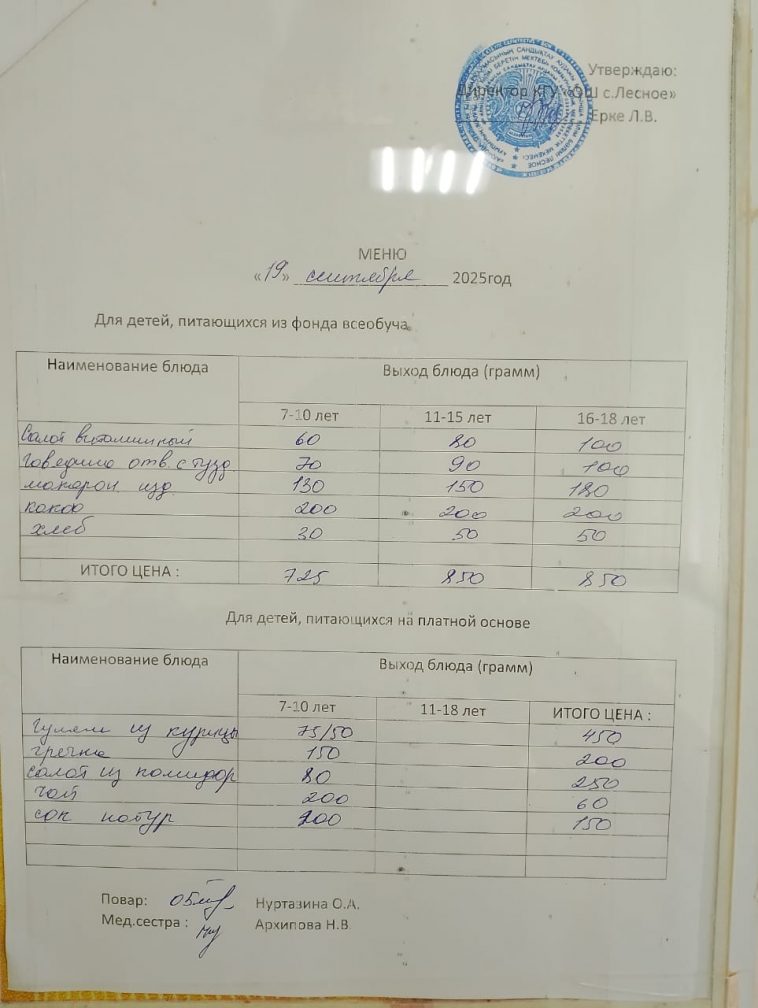 Утверждаю:
Директор КГУ «ОШ с.Лесное»
Ерке Л.В.
МЕНЮ
«19» сентября 2025год
Для детей, питающихся из фонда всеобуча.
Наименование блюда Выход блюда (грамм)
7-10 лет 11-15 лет 16-18 лет
Салат витаминный 60 80 100
Говядина отв. с туз 70 90 100
макарон изд. 130 150 180
какао 200 200 200
хлеб 30 50 50
ИТОГО ЦЕНА : 725 850 850
Для детей, питающихся на платной основе
Наименование блюда Выход блюда (грамм)
7-10 лет 11-18 лет ИТОГО ЦЕНА :
Гуляш из курицы 75/50 450
гречка 150 200
салат из помидор 80 250
чай 200 60
сок натур 200 150
Повар: Нуртазина О.А.
Мед.сестра : Архипова Н.В.